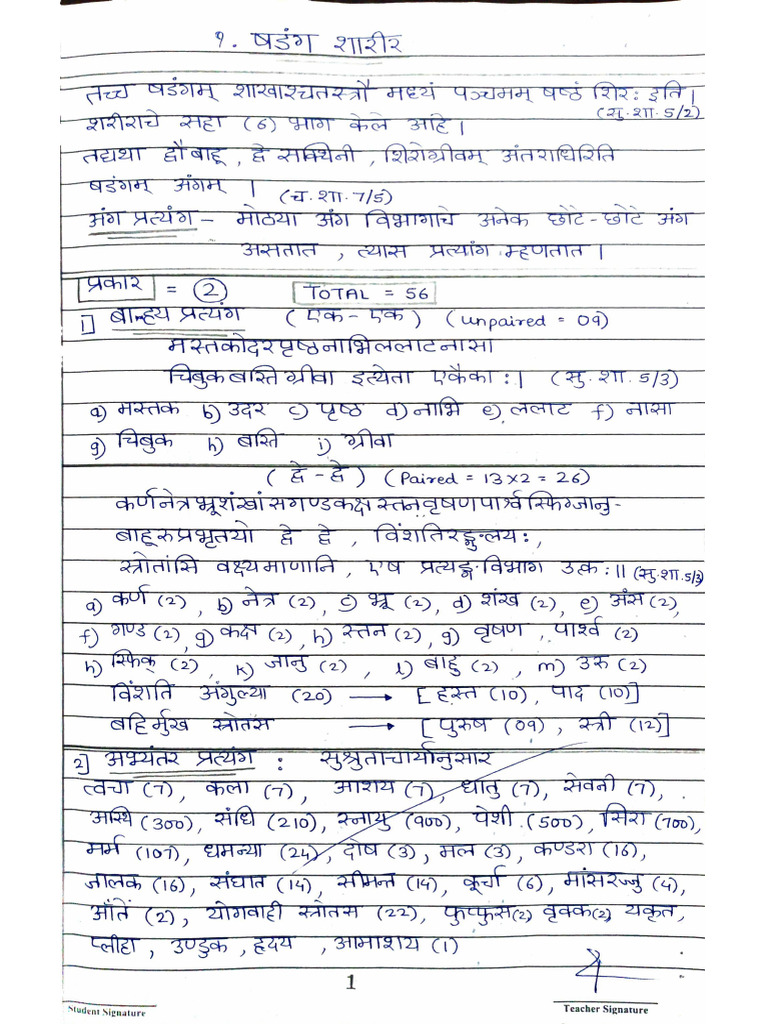 १. षडंग शारीर
तच्च षडंगम् शाखाश्चतस्त्रौ मध्यं पञ्चमम् षष्ठं शिरः इति ।
(सु.शा. 5/2)
शरीराचे सहा (6) भाग केले आहे ।
तद्यथा द्वौ बाहू , द्वे सक्थिनी , शिरोग्रीवम् अंतराधिरिति
षडंगम् अंगम् । (च.शा. 7/5)
अंग प्रत्यंग - मोठया अंग विभागाचे अनेक छोटे-छोटे अंग
असतात , त्यास प्रत्यांग म्हणतात ।
प्रकार = 2 TOTAL = 56
1] बान्हय प्रत्यंग ( एक - एक ) (unpaired = 09)
मस्तकोदरपृष्ठनाभिललाटनासा
चिबुकबास्तिग्रीवा इत्येता एकैका : । (सु. शा. 5/3)
a) मस्तक b) उदर c) पृष्ठ d) नाभि e) ललाट f) नासा
g) चिबुक h) बस्ति i) ग्रीवा
( द्वे - द्वे ) (Paired = 13×2 = 26)
कर्णनेत्रभ्रूशंखांसगण्डकक्षस्तनवृषणपार्श्वस्फिग्जानु-
बाहूरुप्रभृतयो द्वे द्वे , विंशतिरङ्गुलय: ,
स्त्रोतांसि वक्ष्यमाणानि , एष प्रत्यङ्ग विभाग उत्क: ॥ (सु.शा. 5/3)
a) कर्ण (2) , b) नेत्र (2) , c) भ्रू (2) , d) शंख (2) , e) अंस (2) ,
f) गण्ड (2) , g) कक्ष (2) , h) स्तन (2) , g) वृषण , पार्श्व (2)
h) स्फिक् (2) , k) जानु (2) , l) बाहु (2) , m) उरु (2)
विंशति अंगुल्या (20) → [हस्त (10) , पाद (10)]
बहिर्मुख स्त्रोतस → [पुरुष (09) , स्त्री (12)]
2] अभ्यंतर प्रत्यंग : सुश्रुताचार्यानुसार
त्वचा (7) , कला (7) , आशय (7) , धातु (7) , सेवनी (7) ,
अस्थि (300) , संधि (210) , स्नायु (900) , पेशी (500) , सिरा (700) ,
मर्म (107) , धमन्या (24) , दोष (3) , मल (3) , कण्डरा (16) ,
जालक (16) , संघात (14) , सीमन्त (14) , कूर्चा (6) , मांसरज्जु (4) ,
आँतें (2) , योगवाही स्त्रोतस (22) , फुप्फुस (2) वृक्क (2) , यकृत ,
प्लीहा , उण्डुक , हृदय , आमाशय (1)
1
Student Signature
Teacher Signature